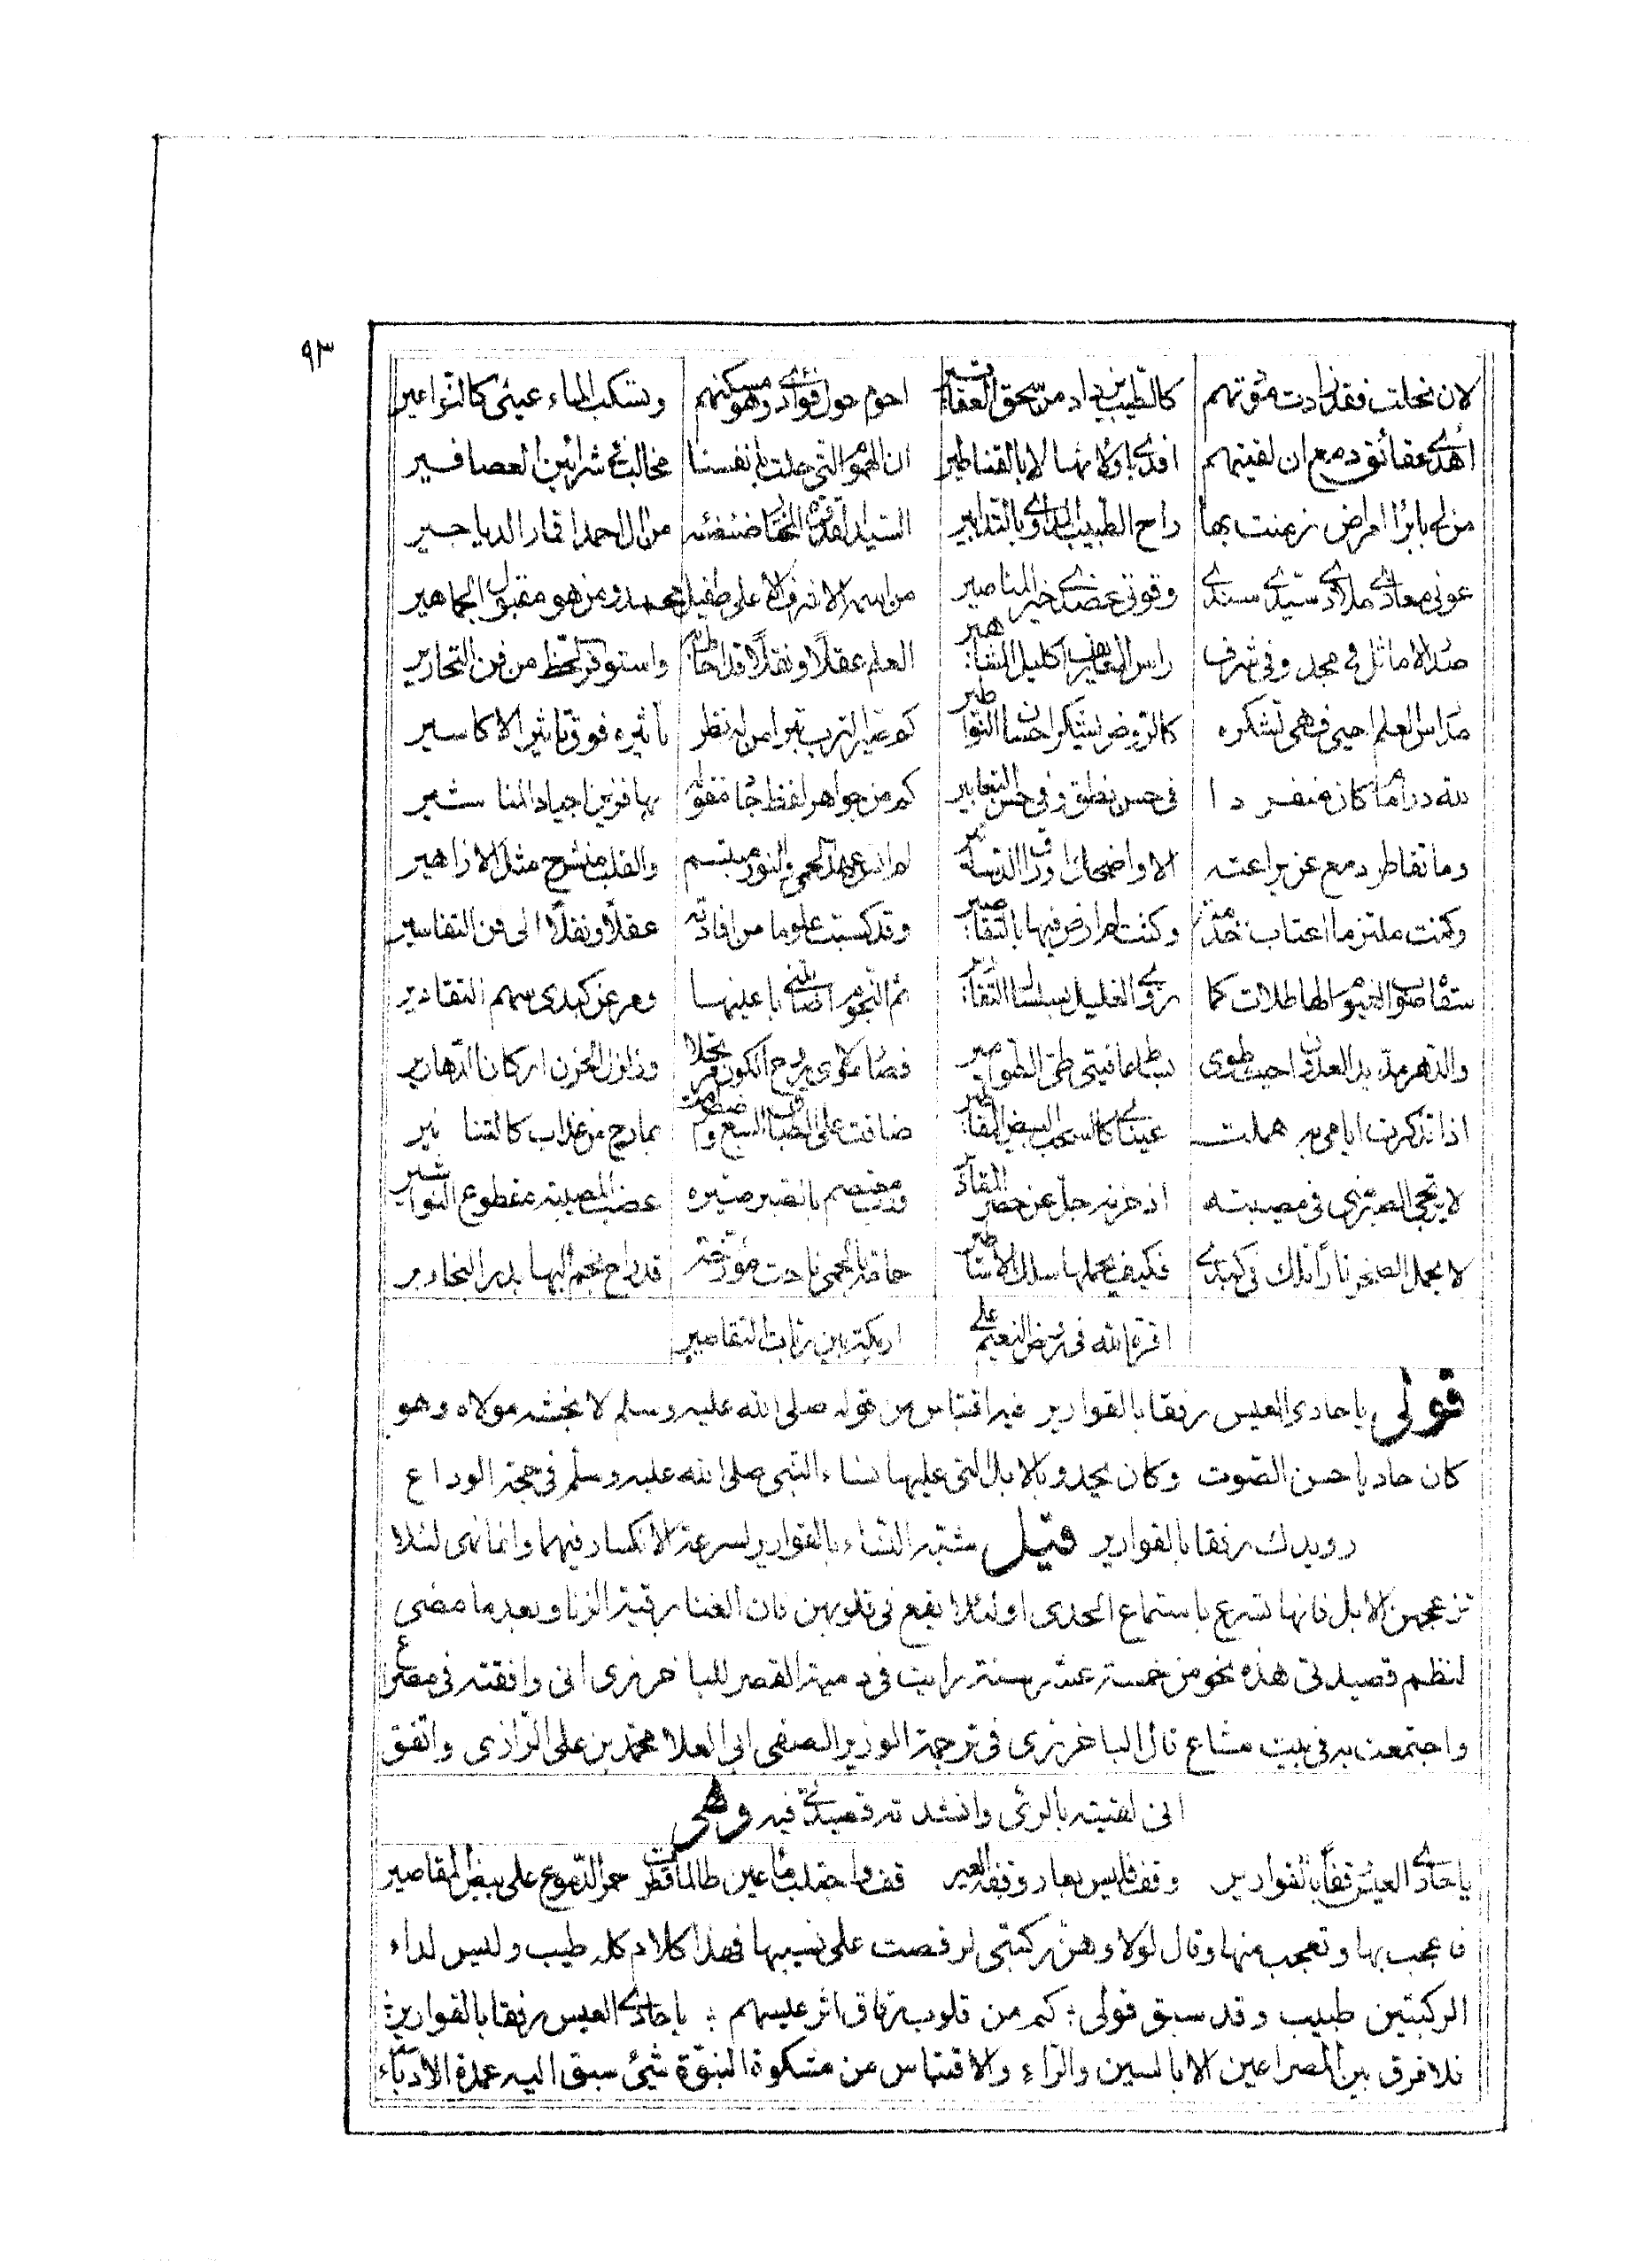 ٩٣
لان نحلت فقد زادت مودتهم كالطيب يزداد من سحق العقاقير احوم حول فؤادي وهو مسكنهم وتسكب الماء عيني كالنواعير
اهدي عقائق دمعي ان لقيتهم افدي باولائها لا بالقناطير ان الهموم التي حلت بانفسنا مخالب في شرايين العصافير
من لي بابرا امراض زمنت بها راح الطبيب المداوي بالتدابير السيد من ال احمد اقمار الدياجير
عوني معاذي ملاذي سيدي سندي وقوتي عضدي خير المناصير من اسمه الاشرف الاعلى طفيل محمد ومن هو مقبول الجماهير
صدر الاماثل في مجد وفي شرف راس اكليل المشاهير العلم عقلا ونقلا قد احاط به واستوفر الحظ من فن النحارير
مدارس العلم احيى فهي تشكره كالروض يشكر احسان النواطير كم صير الترب تبرا من له نظر تأثيره فوق تاثير الاكاسير
لله در امام كان منفردا في حسن نطق وفي حسن التعابير كم من جواهر لفظ جاء منفقها بها فزين اجياد المناشير
وما تقاطر دمع عن يراعته الا واضحك اوراق الدساتير والنور مبتسم والقلب منشرح مثل الازاهير
وكنت ملتزما اعتاب خدمته وكنت لم ارض فيها بالتقاصير وقد كسبت علوما من افادته عقلا ونقلا الى فن التفاسير
سقاه صوب الغيوم الهاطلات كما يروي الغليل بسلسال التقارير ثم النجوم اصابتني باعينها ومر عن كبدي سهم التقادير
والدهر مذ بدر العدنان احيب طوى بساط عافيتي طي الطوامير وزلزل الحزن اركان الدهارير
اذا تذكرت ايامي به هملت عيناي كالسحب البيض المقاطير ضاقت على الطباق السبع واضطرمت بمارج من عذاب كالتنانير
لا يرتجي الصبر في مصيبته اذ حزنه جل عن حصر المقادير ومعتصم بالصبر صيره عضب المصيبة مقطوع النواشير
لا يحمل الصخر نارا تلك في كبدي فكيف يحملها سلك الاساطير حمامة بالحمى ناحت مؤرخة قد راح نجم البها بدر النحارير
اقره الله في روض النعيم على اريكة بين ربات المقاصير
قولي يا حادي العيس رفقا بالقوارير فيه اقتباس من قوله صلى الله عليه وسلم لانجشه مولاه وهو
كان حاديا حسن الصوت وكان يحدو بالابل التي عليها نساء النبي صلى الله عليه وسلم في حجة الوداع
رويدك رفقا بالقوارير قيل شبه النساء بالقوارير لسرعة الانكسار فيهما وانما نهى لئلا
تزعجهن الابل فانها تسرع باستماع الحدى او لئلا يقع في قلوبهن فان الغنا رقية الزنا وبعد ما مضى
لنظم قصيدتي هذه نحو من خمسة عشر سنة رايت في دمية القصر للباخرزي اني وافقته في مصراع
واجتمعت به في بيت مشاع قال الباخرزي في ترجمة الوزير الصفي ابي العلا محمد بن علي الرازي واتفق
اني لقيته بالري وانشدته قصيدتي فيه وهي
يا حادي العيس رفقا بالقوارير وقف فليس بعار وقفة العير قف واحتلب ماء عين طالما قطرت حمر الدموع على بيض المقاصير
فاعجب بها وتعجب منها وقال لولا وهن ركبتي لرقصت على نسيبها فهذا كلام كله طيب وليس لداء
الركبتين طبيب وقد سبق قولي : كم من قلوب رقاق اثر عيسهم : يا حادي العيس رفقا بالقوارير :
فلا فرق بين المصراعين الا بالسين والراء والاقتباس من مشكوة النبوة شئ سبق اليه عمدة الادباء